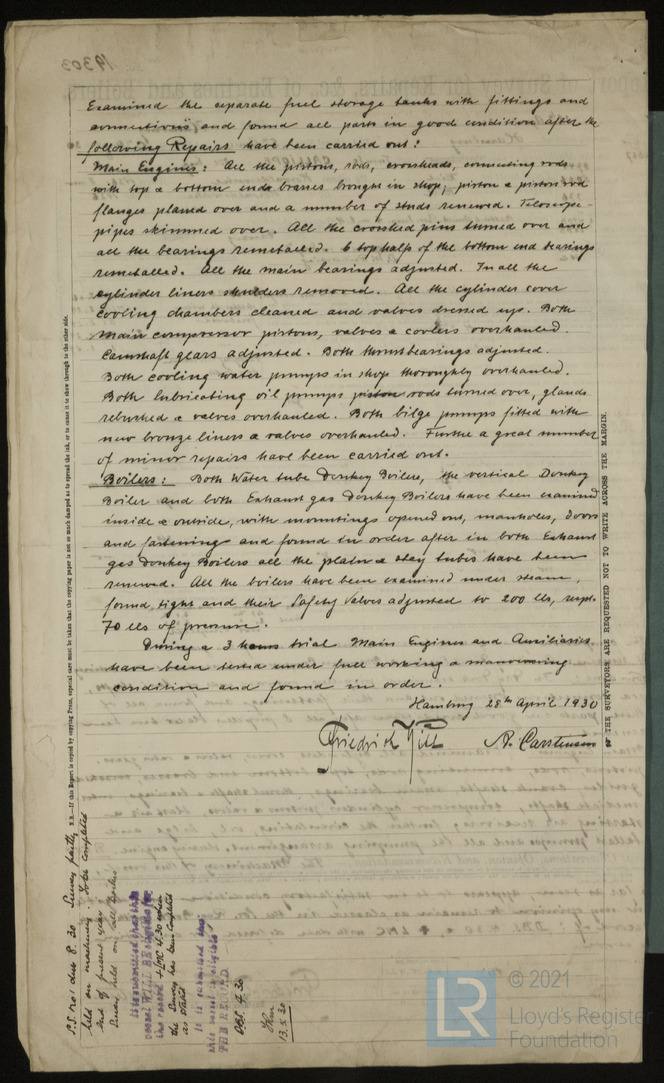 19303
Examined the separate fuel storage tanks with fittings and
connections and found all parts in good condition after the
following Repairs have been carried out:
Main Engines: All the pistons, rods, crossheads, connecting rods
with top & bottom ends brasses brought in shop, piston & piston rod
flanges planed over and a number of studs renewed. Telescope
pipes skimmed over. All the crosshed pins turned over and
all the bearings remetalled. 6 top halfs of the bottom end bearings
remetalled. All the main bearings adjusted. In all the
cylinder liners shulders removed. All the cylinder cover
cooling chambers cleaned and valves dressed up. Both
main compressor pistons, valves & coolers overhauled.
Camshaft gears adjusted. Both thrustbearings adjusted.
Both cooling water pumps in shop thoroughly overhauled.
Both lubricating oil pumps piston rods turned over, glands
rebushed & valves overhauled. Both bilge pumps fitted with
new bronze liners & valves overhauled. Further a great number
of minor repairs have been carried out.
Boilers: Both Water tube Donkey Boilers, the vertical Donkey
Boiler and both Exhaust gas Donkey Boilers have been examined
inside & outside, with mountings opened out, manholes, doors
and fastenings and found in order after in both Exhaust
gas Donkey Boilers all the plain & stay tubes have been
renewed. All the boilers have been examined under steam,
found tight and their Safety Valves adjusted to 200 lbs, resp.
70 lbs of pressure.
During a 3 hours trial Main Engines and Auxiliaries
have been tested under full working & manoeuvring
condition and found in order.
Hamburg 28th April 1930
Friedrich Hill A. Carstensen
N.B.—If this Report is copied by copying Press, especial care must be taken that the copying paper is not so much damped as to spread the ink, or to cause it to show through to the other side.
THE SURVEYORS ARE REQUESTED NOT TO WRITE ACROSS THE MARGIN.
S.S. No 1 due 8.30 Survey partly
held on machinery. To be completed
end of present year
Survey held on all Boilers
It is submitted that this
vessel WILL BE eligible for
the record + LMC 4.30 when
the Survey has been completed
as stated
It is submitted that
this vessel is eligible
THE RECORD
DBS 4.30
13.5.30
© 2021
Lloyd's Register
Foundation
LR